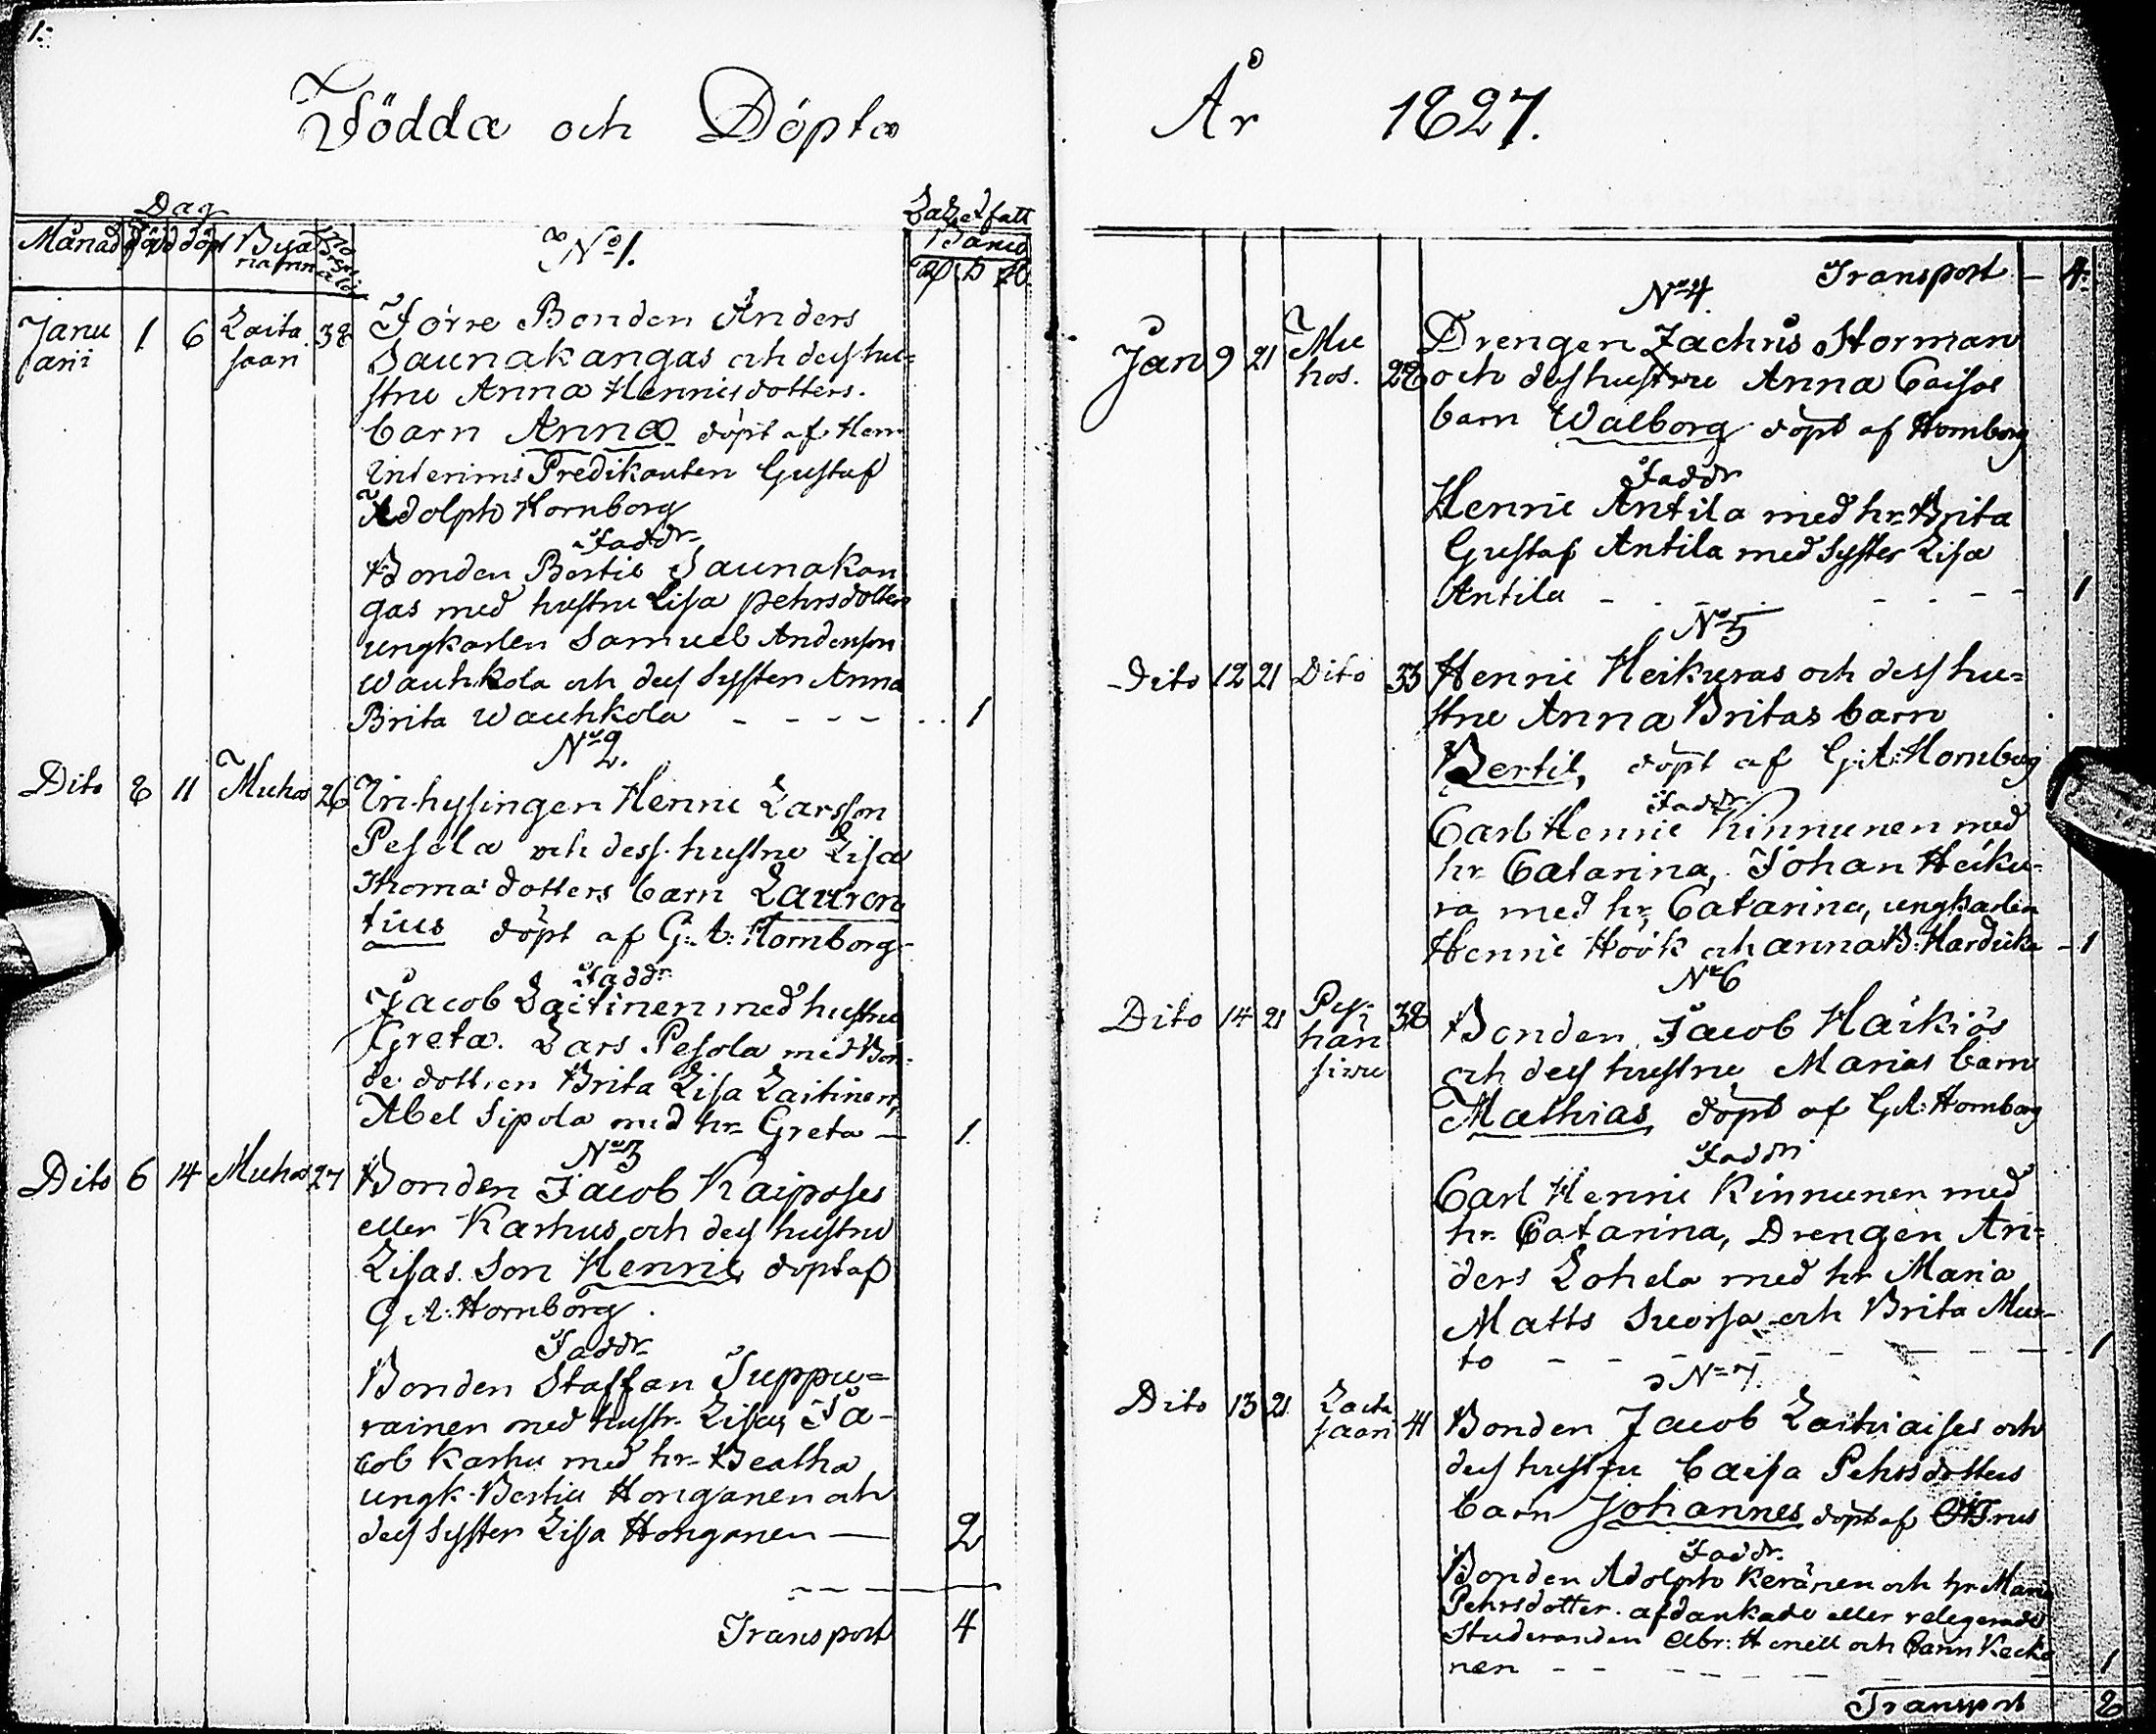 1.
Födda och Döpta
Dag
Månad född döpt Bya namn
No 1.
Barnens
Janu arii 1 6 Laita saari 38
Förre Bonden Anders
Saunakangas och dess hu=
stru Anna Henricsdotters.
barn Anna döpt af Herr
Interims Predikanten Gustaf
Adolph Hornborg
Faddr
Bonden Bertil Saunakan
gas med hustru Lisa Pehrsdotter
ungkarlen Samuel Andersson
Wauhkola och dess Syster Anna
Brita Wauhkola - - - - - 1
No 2.
Dito 8 11 Muhos 26 Inhysingen Henric Larsson
Pesola och dess hustru Lisa
Thomasdotters barn Lauren
tius döpt af G: A: Hornborg
Faddr
Jacob Laitinen med hustru
Greta. Lars Pesola med Bon-
de dottren Brita Lisa Laitinen,
Abel Sipola med hr Greta — 1.
No 3
Dito 6 14 Muhos 27 Bonden Jacob Kaiposes
eller Karhus och dess hustru
Lisas. Son Henric, döpt af
G A: Hornborg.
Faddr
Bonden Staffan Suppu=
rainen med hustr. Lisa, Ja-
cob Karhu med hr Beatha
ungk. Bertil Honganen och
dess Syster Lisa Honganen — 2
Transport 4
År 1827.
Transport - 4:
No 4.
Jan 9 21 Mu hos. 28
Drengen Zachris Storman
och dess hustru Anna Caisas
barn Walborg döpt af Hornborg
Faddr
Henric Antila med hr Brita
Gustaf Antila med Syster Lisa
Antila - - - - - 1
No 5
Dito 12 21 Dito 33 Henric Heikuras och dess hu=
stru Anna Britas barn
Bertil, döpt af G: A: Hornborg
Faddr
Carl Henric Kinnunen med
hr Catarina, Johan Heiku-
ra med hr Catarina, ungkarlen
Henric Höök och Anna B: Hardick - 1
No 6
Dito 14 21 38 Bonden Jacob Haikiös
och dess hustru Marias barn
Mathias, döpt af G A: Hornborg
Faddr
Carl Henric Kinnunen med
hr Catarina, Drengen An=
ders Lohela med hr Maria
Matts Suorsa och Brita Mur-
to - - - - - 1
No 7.
Dito 13 21 Laita saari 41 Bonden Jacob och
dess hustru Caisa Pehrsdotters
barn Johannes döpt af
Faddr.
Bonden Adolph Keränen och hr Maria
Pehrsdotter. afdankade eller relegerade
Studeranden Abr: och Carin Kecko
nen - - - - - 1
Transport 8